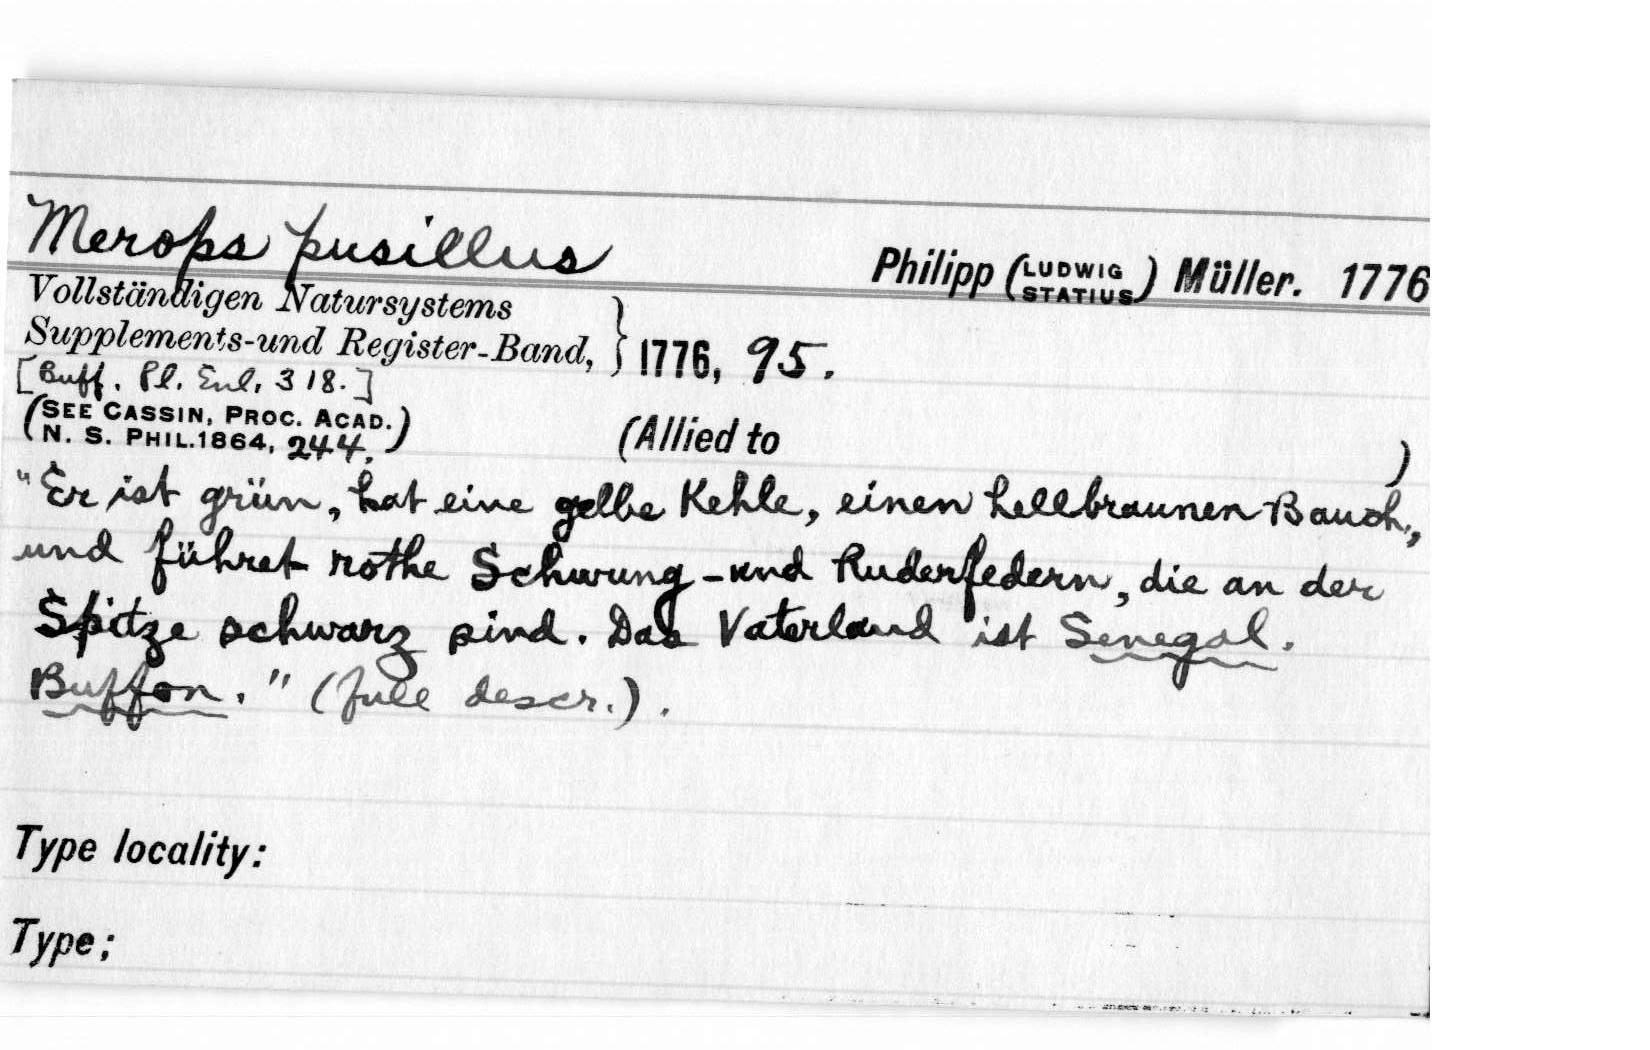 Merops pusillus
Philipp (LUDWIG STATIUS) Müller. 1776
Vollständigen Natursystems
Supplements-und Register-Band, } 1776, 95.
[Buff. Pl. Enl. 318.]
(SEE CASSIN, PROC. ACAD.
N. S. PHIL. 1864, 244.)
(Allied to )
"Er ist grün, hat eine gelbe Kehle, einen hellbraunen Bauch,
und führet rothe Schwung-und Ruderfedern, die an der
Spitze schwarz sind. Das Vaterland ist Senegal.
Buffon." (full descr.).
Type locality:
Type;